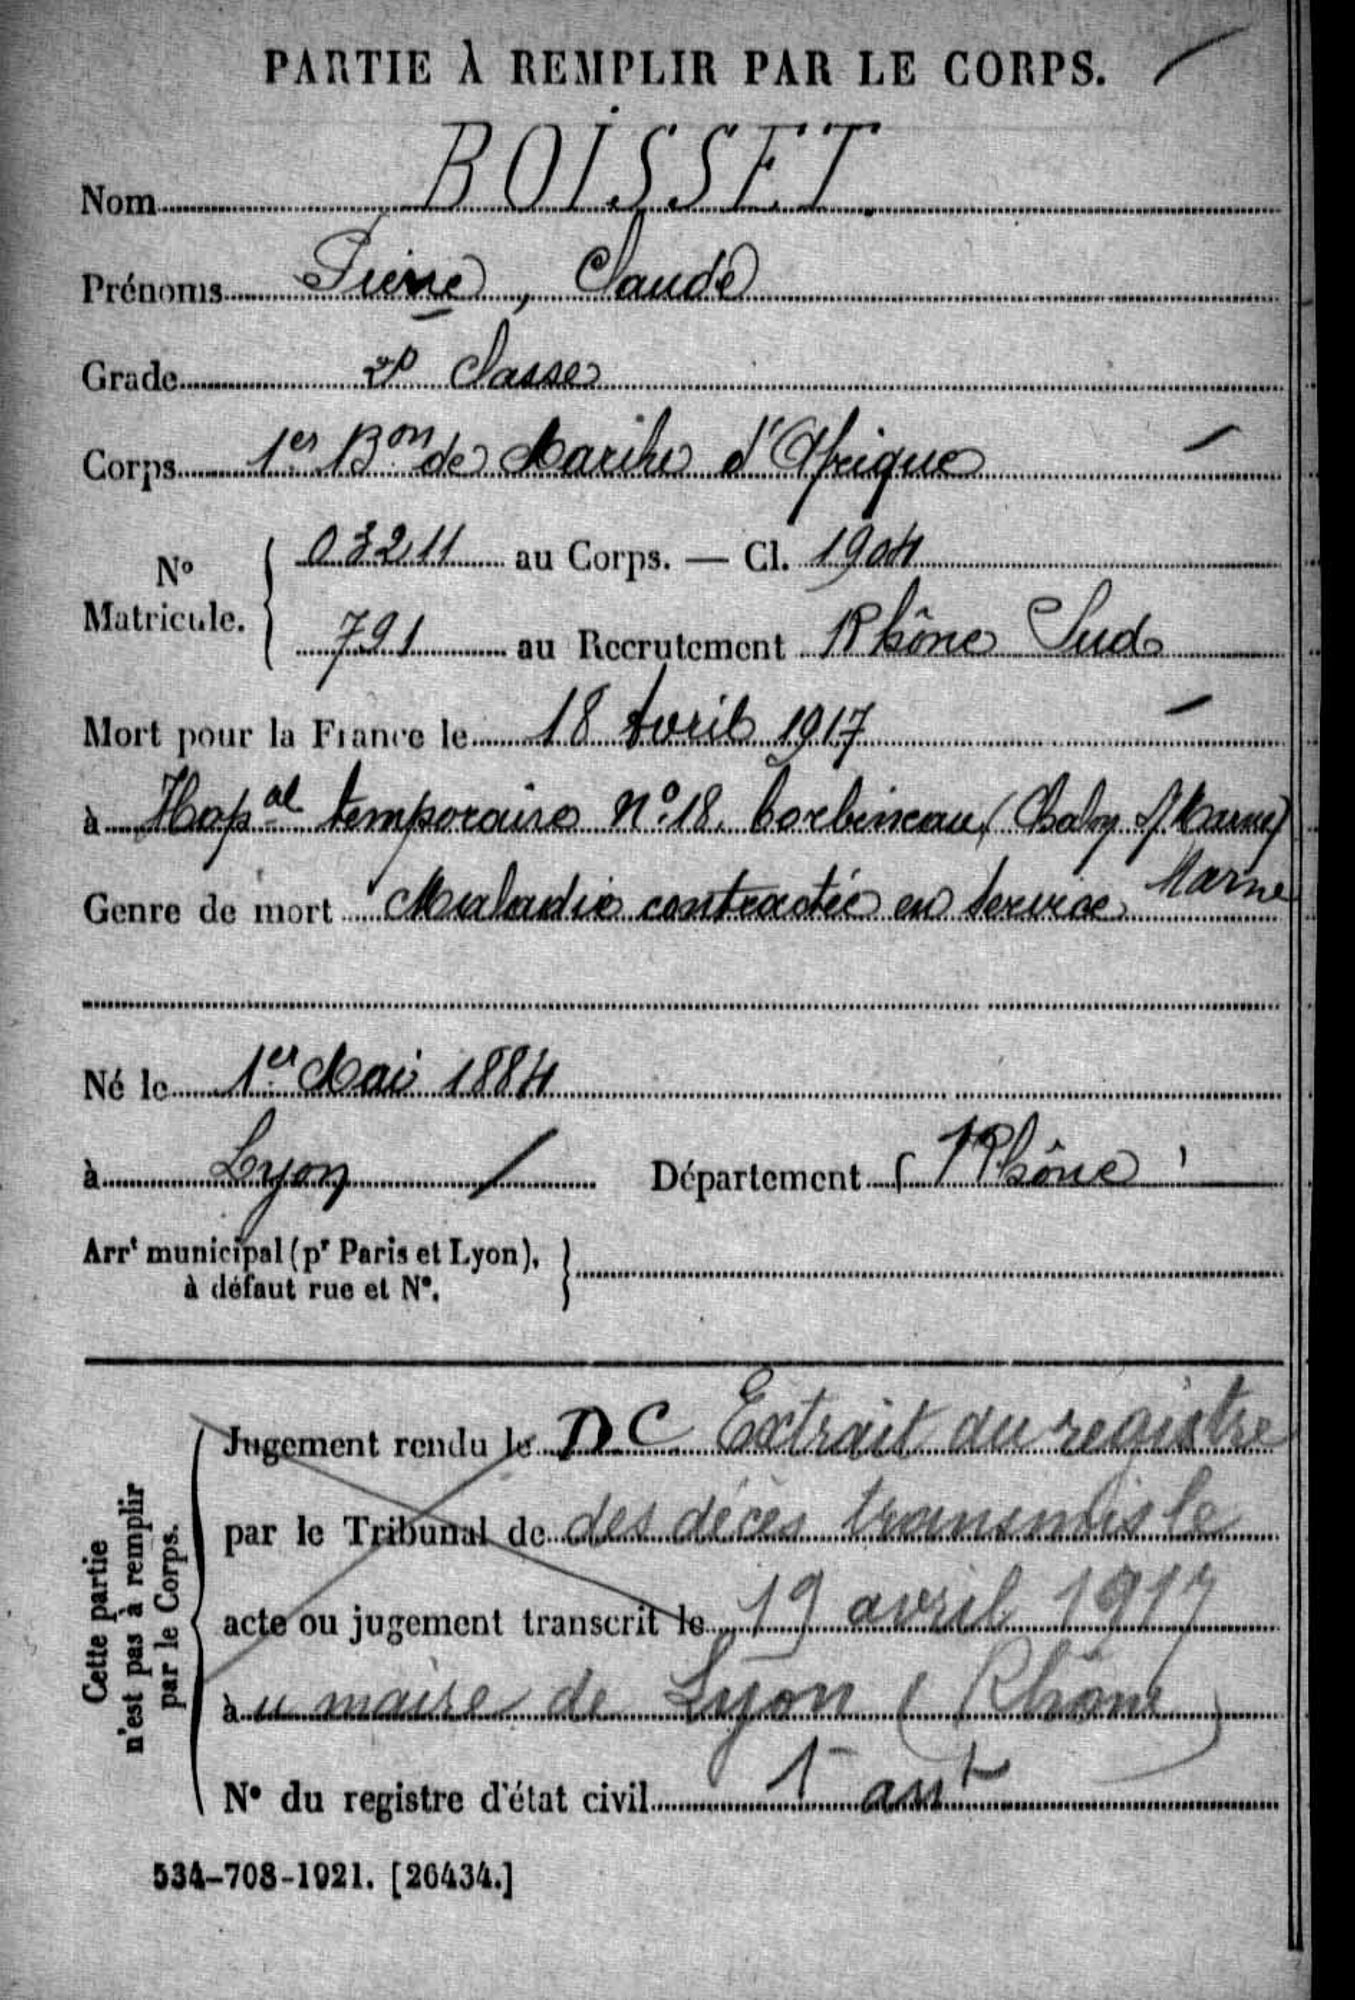 PARTIE À REMPLIR PAR LE CORPS.
Nom BOISSET.
Prénoms Pierre, Claude
Grade 2e Classe
Corps 1er Bon de Marche d'Afrique
N° Matricule. { 03211 au Corps. — Cl. 1904
791 au Recrutement Rhône Sud
Mort pour la France le 18 Avril 1917
à Hopal temporaire n°18. Corbineau (Chalon s/Marne)
Marne
Genre de mort Maladie contractée en service
Né le 1er Mai 1884
à Lyon / Département (Rhône)
Arrt municipal (pr Paris et Lyon),
à défaut rue et N°. }
Cette partie
n'est pas à remplir
par le Corps.
Jugement rendu le DC Extrait du registre
par le Tribunal de des décès transmis le
acte ou jugement transcrit le 19 avril 1917
à u maire de Lyon (Rhône)
N° du registre d'état civil 1r art
534-708-1921. [26434.]